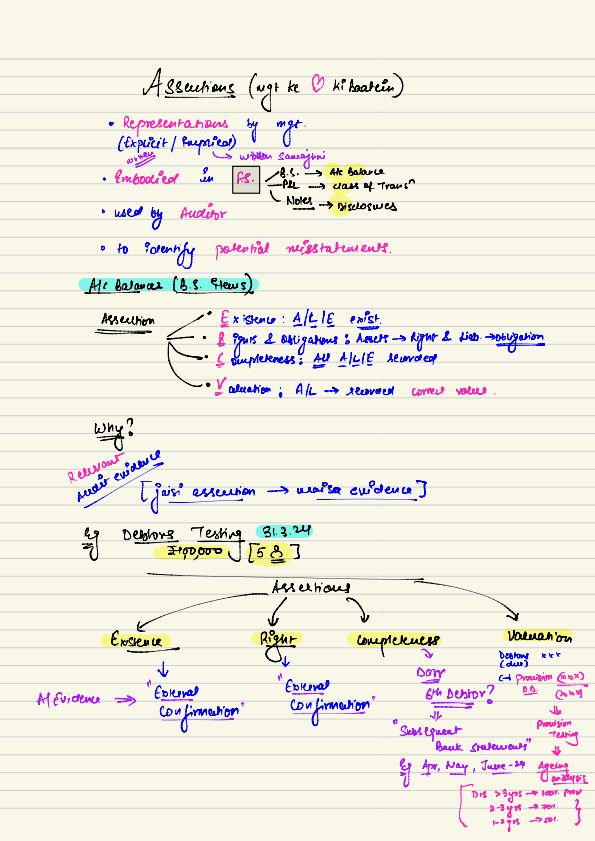 Assertions (mgt ke ♡ ki baatein)
• Representations by mgt.
(Explicit / Implical)
written → written samajhni
• Embodied in F.S.
B.S. → A/c Balance
P&L → class of Transn
Notes → Disclosures
• used by Auditor
• to identify potential misstatements.
A/c Balances (B.S. Items)
Assertion
• Existence : A/L/E exist.
• Rights & Obligations : Assets → Right & Liab. → obligation
• Completeness : All A/L/E recorded
• Valuation : A/L → recorded correct value.
Why?
Relevant
Audit evidence
[jaisi assertion → waisa evidence]
Eg Debtors Testing 31.3.24
[5 ]
Assertions
Existence Right Completeness Valuation
A/Evidence ⇒ "External Confirmation"
"External Confirmation"
Dorr
6th Debtor?
"Subsequent
Bank Statements"
Eg Apr, May, June-24
Debtors xxx
(due)
(-) Provision (xxx)
D.D. (xxx)
Provision
Testing
Ageing
analysis
Drs >3yrs → 100% Prov
2-3yrs → 70%
1-2yrs → 50%